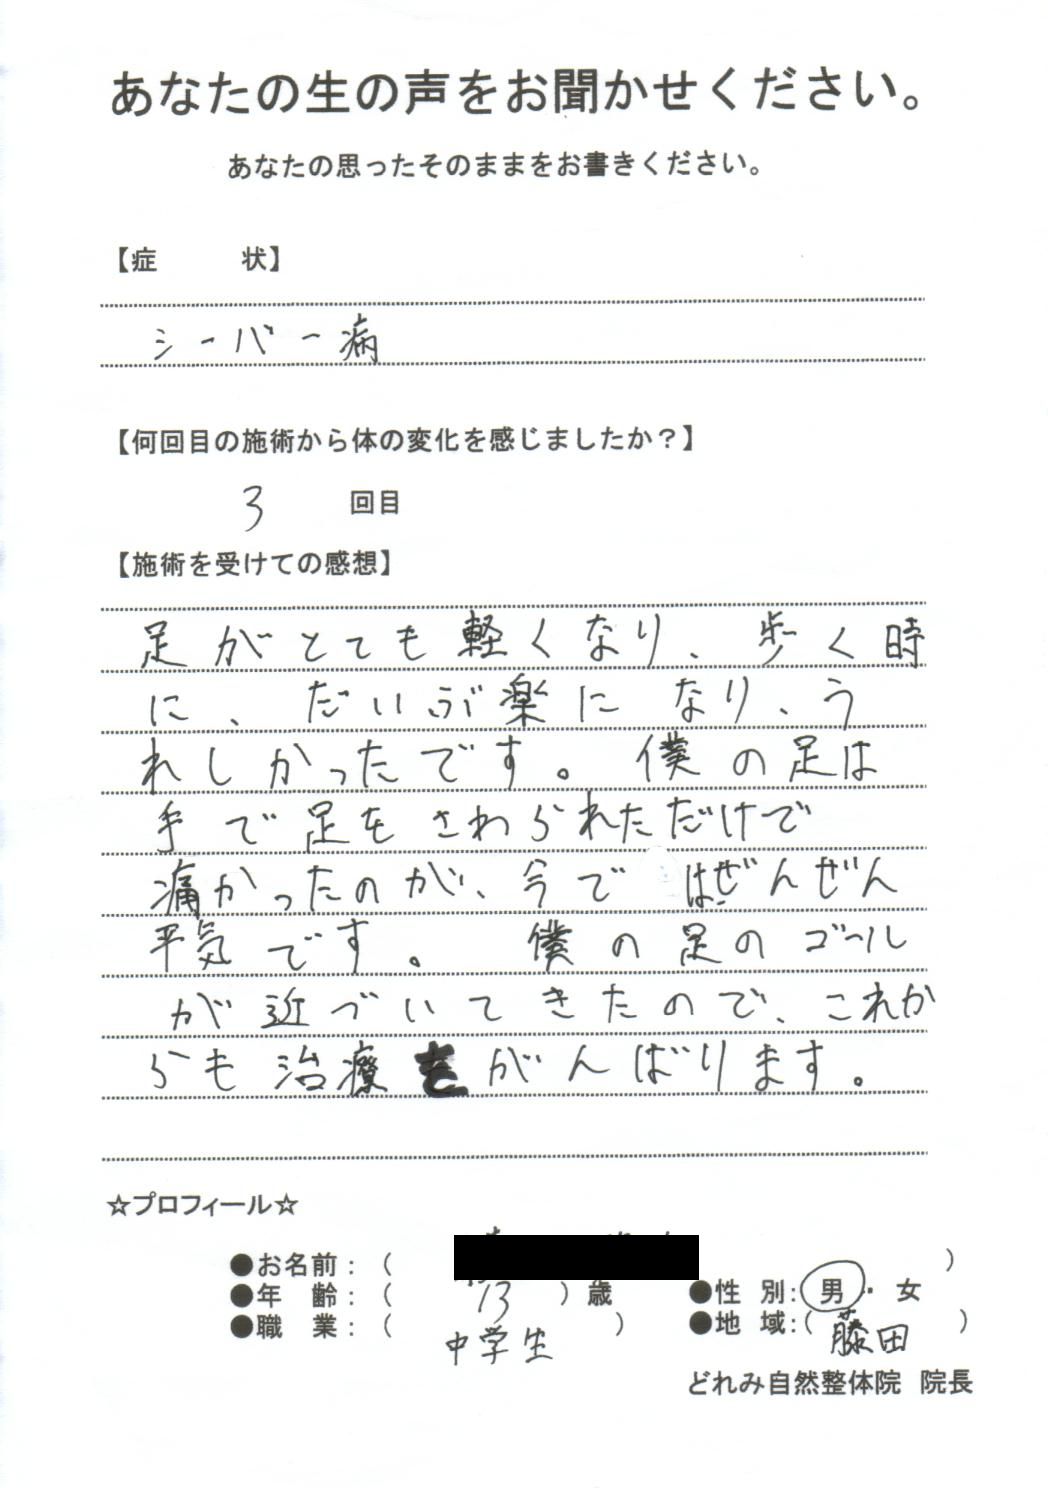 あなたの生の声をお聞かせください。
あなたの思ったそのままをお書きください。
【症　　状】
シーバー病
【何回目の施術から体の変化を感じましたか？】
3 回目
【施術を受けての感想】
足がとても軽くなり、歩く時
に、だいぶ楽になり、う
れしかったです。僕の足は
手で足をさわられただけで
痛かったのが、今ではぜんぜん
平気です。僕の足のゴール
が近づいてきたので、これか
らも治療をがんばります。
☆プロフィール☆
●お名前：（　　　）
●年　齢：（ 13 ）歳　●性　別：男・女
●職　業：（ 中学生 ）　●地　域：（ 藤田 ）
どれみ自然整体院　院長